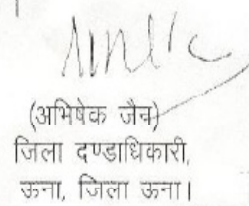 (अभिषेक जैन)
जिला दण्डाधिकारी,
ऊना, जिला ऊना।